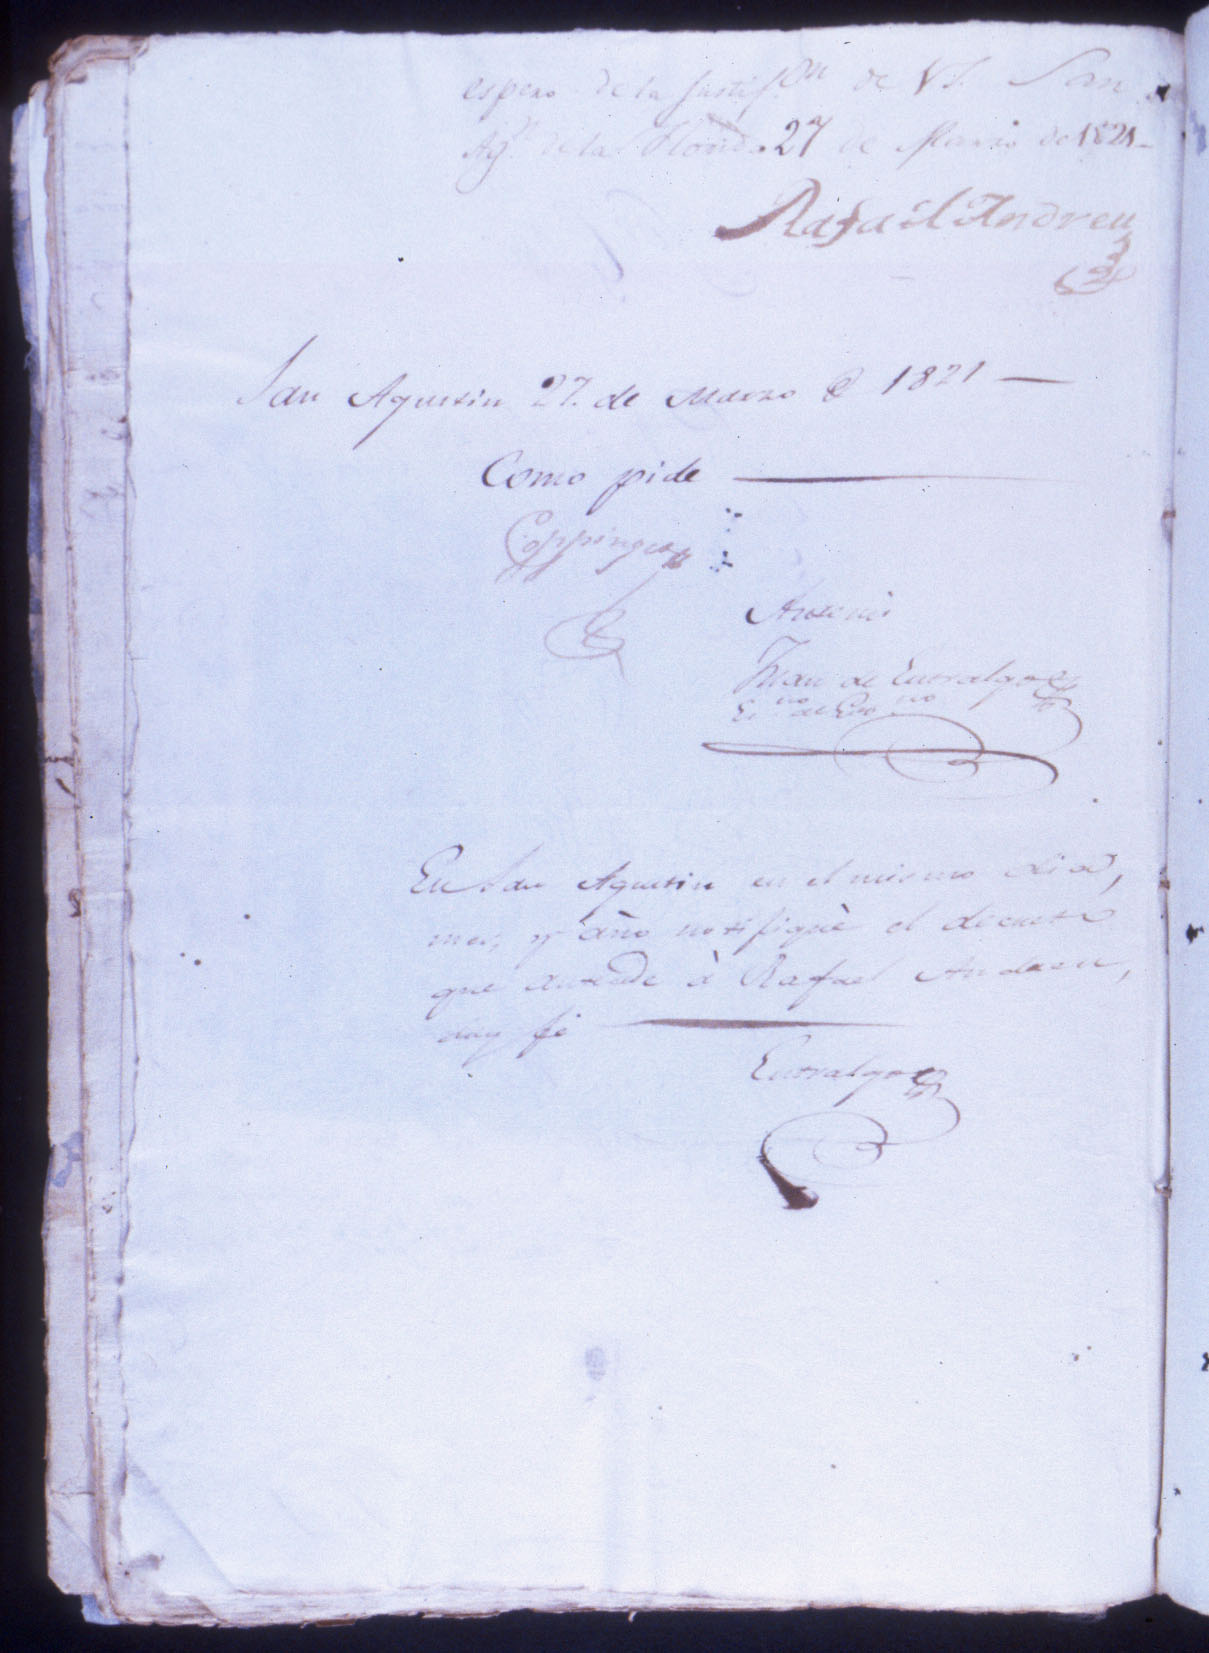 espero de la Justifon de VS. San
Agn de la Florida 27 de Marzo de 1821-
Rafaél Andreu
San Agustin 27. de Marzo de 1821 —
Como pide —
Coppinger
Ante mi
Juan de Entralgo
Eno de Gno
En San Agustin en el mismo dia,
mes, y año notifiquè el decreto
que antecede à Rafael Andreu,
doy fé —
Entralgo